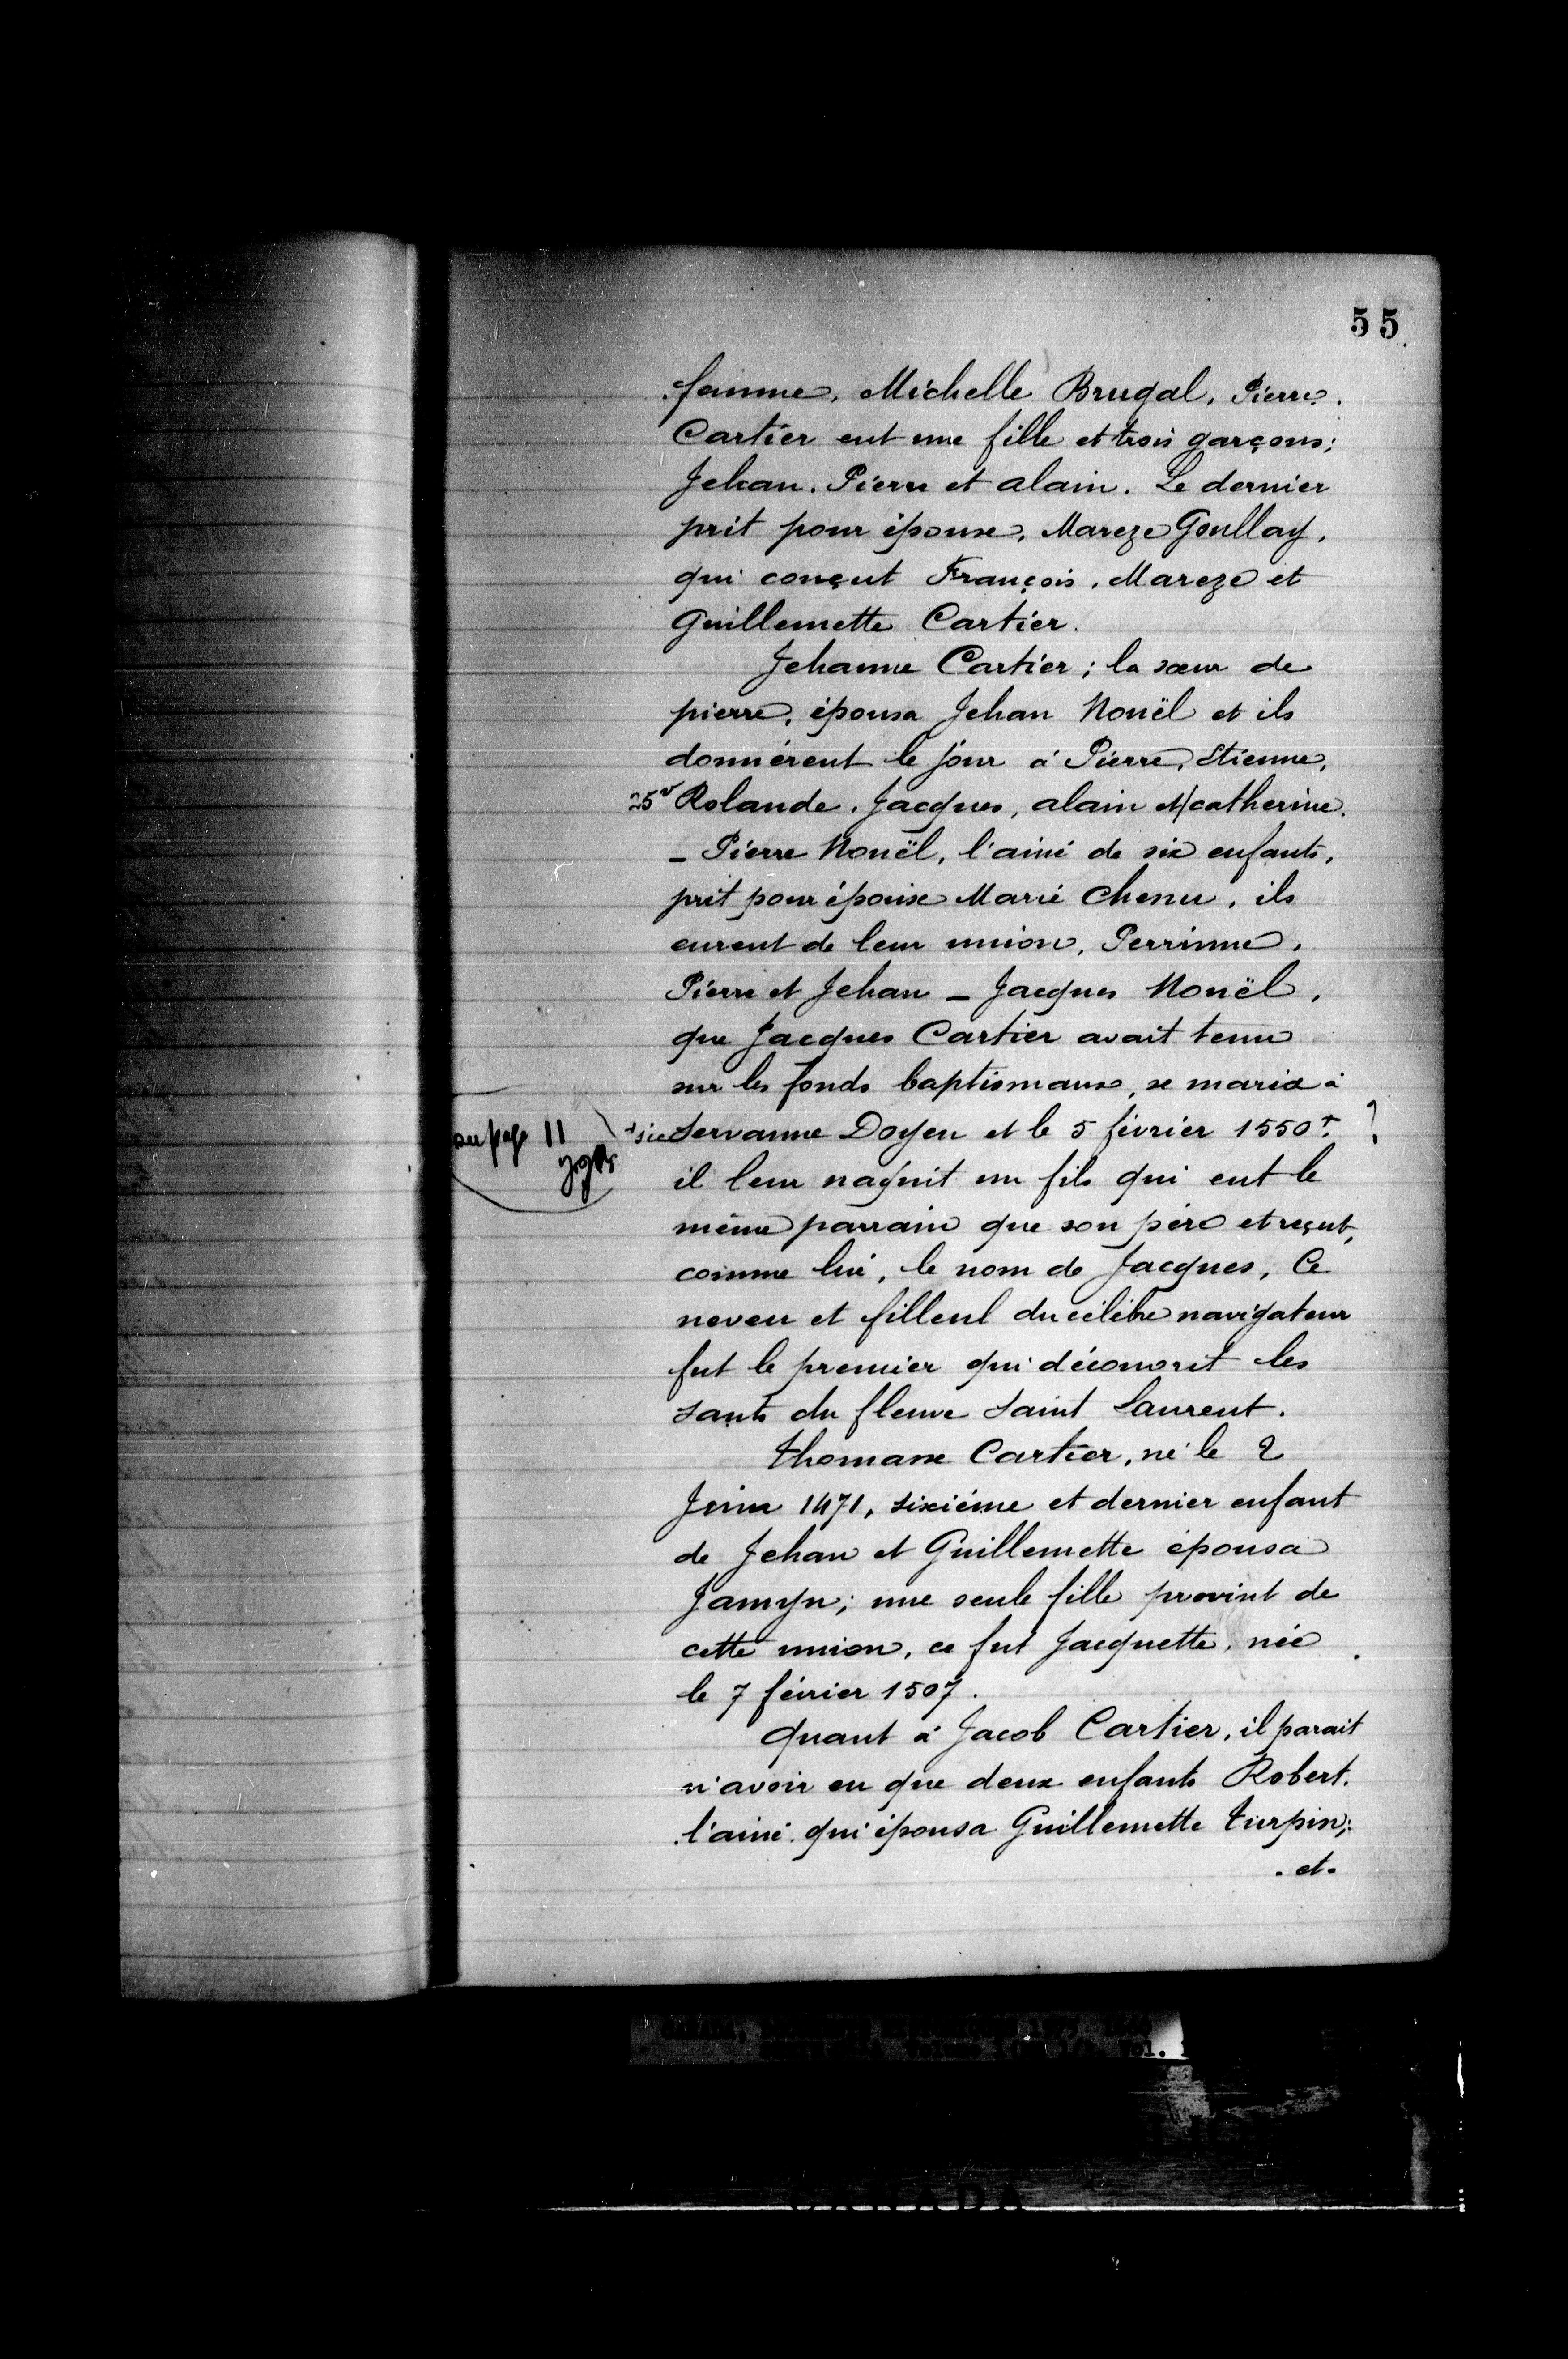 55
femme, Michelle Brugal, Pierre
Cartier eut une fille et trois garçons;
Jehan, Pierre et alain. Le dernier
prit pour épouse, Mareze Goullay,
qui conçut François, Mareze et
Guillemette Cartier.
Jehanne Cartier; la sœur de
pierre, épousa Jehan Nouël et ils
donnérent le jour à Pierre, Etienne,
Rolande, Jacques, alain et catherine.
_ Pierre Nouël, l'ainé de six enfants,
prit pour épouse Marie Chenu, ils
eurent de leur union, Perrinne,
Pierre et Jehan _ Jacques Nouël,
que Jacques Cartier avait tenu
sur les fonds baptismaux, se maria à
+sic Servanne Doyen et le 5 février 1550+. ?
au page 11
il leur naquit un fils qui eut le
même parrain que son père et reçut,
comme lui, le nom de Jacques, Ce
neveu et filleul du célèbre navigateur
fut le premier qui découvrit les
sauts du fleuve Saint Laurent.
Thomase Cartier, né le 2
Juin 1471, sixiéme et dernier enfant
de Jehan et Guillemette épousa
Jamyn; une seule fille provint de
cette union, ce fut Jacquette, née
le 7 février 1507.
Quant à Jacob Cartier, il parait
n'avoir eu que deux enfants Robert,
l'ainé, qui épousa Guillemette Turpin;
. et .